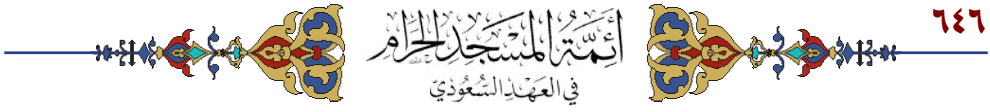 ٦٤٦
أَئِمَّةُ المَسْجِدِ الحَرَامِ
في العَهْدِ السُّعُودِيّ